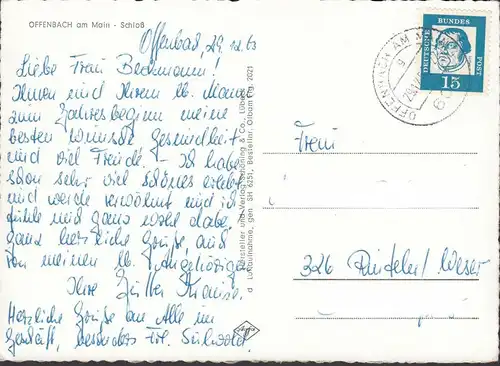 OFFENBACH am Main - Schloß
Offenbach, 29.12.63
Liebe Frau Beckmann!
Ihnen und Ihrem lb. Mann
zum Jahresbeginn meine
besten Wünsche Gesundheit
und viel Freude. - Ich habe
schon sehr viel schönes erlebt
und werde verwöhnt und ich
fühle mich ganz wohl dabei
ganz herzliche Grüße, auch
von meinen lb. Angehörigen
Ihre
Herzliche Grüße an Alle im
Geschäft, besonders Frl.
Hersteller und Verlag Schöning & Co., Lübeck
gen. SH 6251, Bestellnr. Offbam 2021
DEUTSCHE BUNDES POST
15
OFFENBACH AM MAIN
Frau
326 Rinteln/Weser